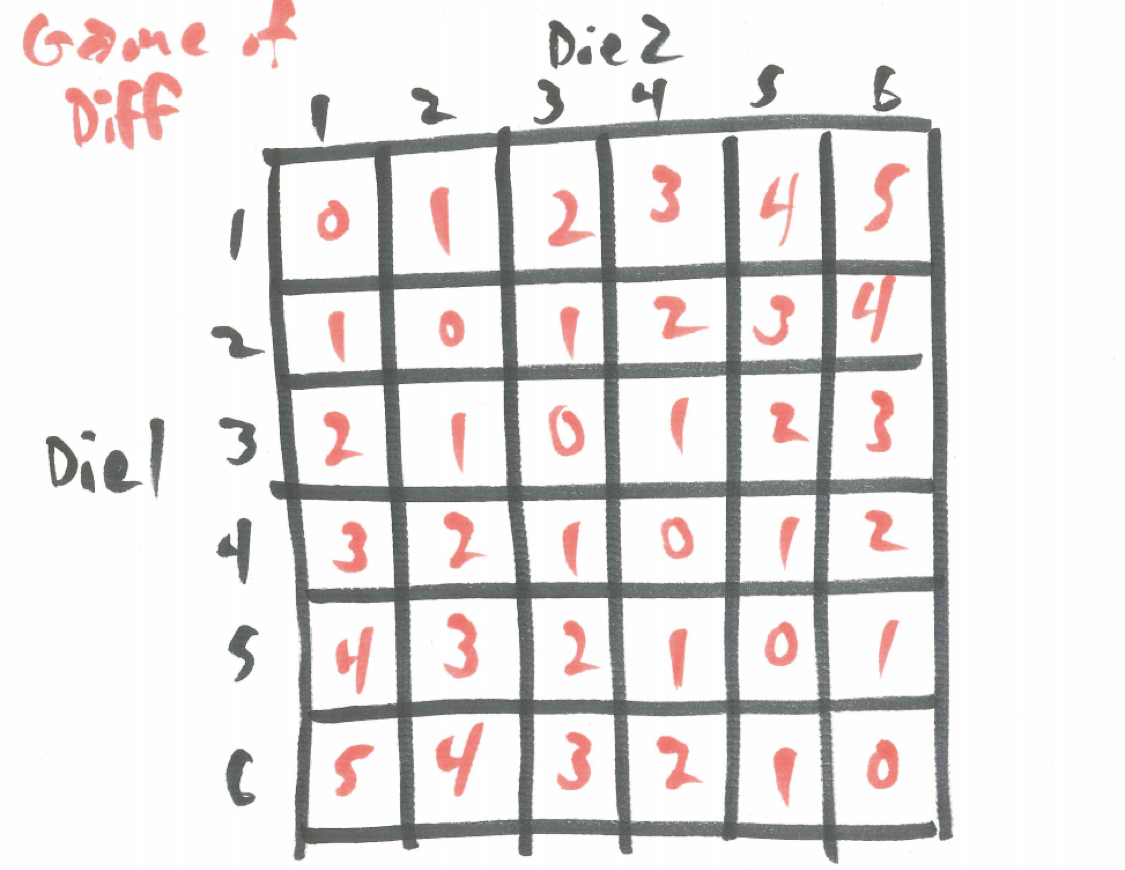 Game of
Diff
Die 2
1 2 3 4 5 6
1 0 1 2 3 4 5
2 1 0 1 2 3 4
Die 1
3 2 1 0 1 2 3
4 3 2 1 0 1 2
5 4 3 2 1 0 1
6 5 4 3 2 1 0